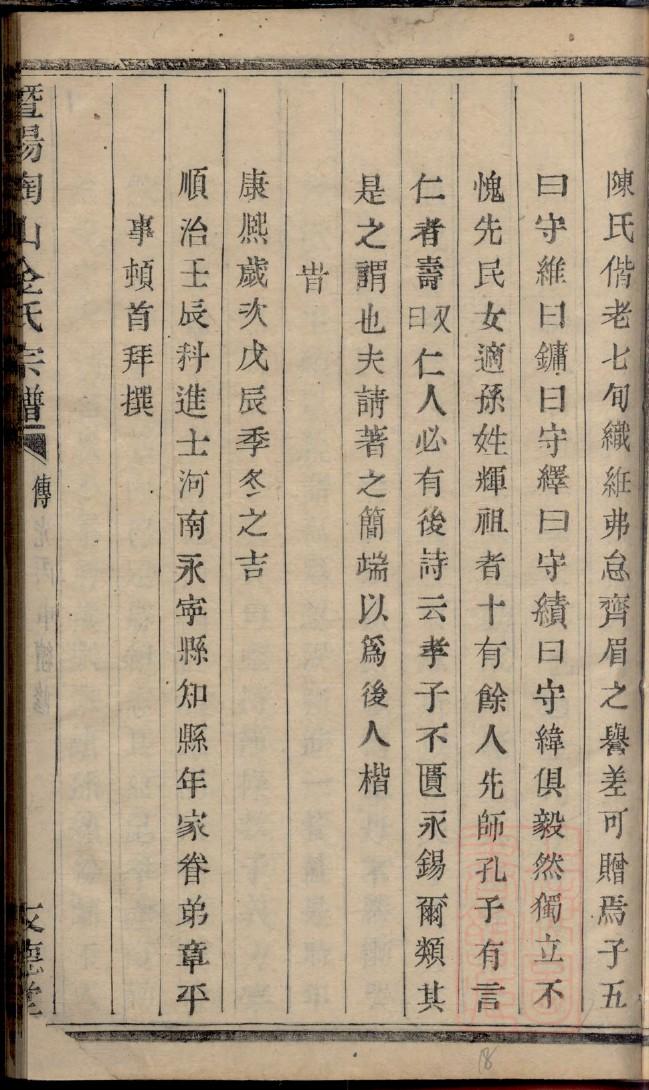 陳氏偕老七旬織絍弗怠齊眉之譽差可贈焉子五
曰守維曰鏞曰守繹曰守績曰守緯俱毅然獨立不
愧先民女適孫姓輝祖者十有餘人先師孔子有言
仁者壽又曰仁人必有後詩云孝子不匱永錫爾類其
是之謂也夫請著之簡端以爲後人楷
旹
康熈歲次戊辰季冬之吉
順治壬辰科進士河南永寧縣知縣年家眷弟章平
事頓首拜撰
暨陽陶山金氏宗譜
傳
文德堂
18